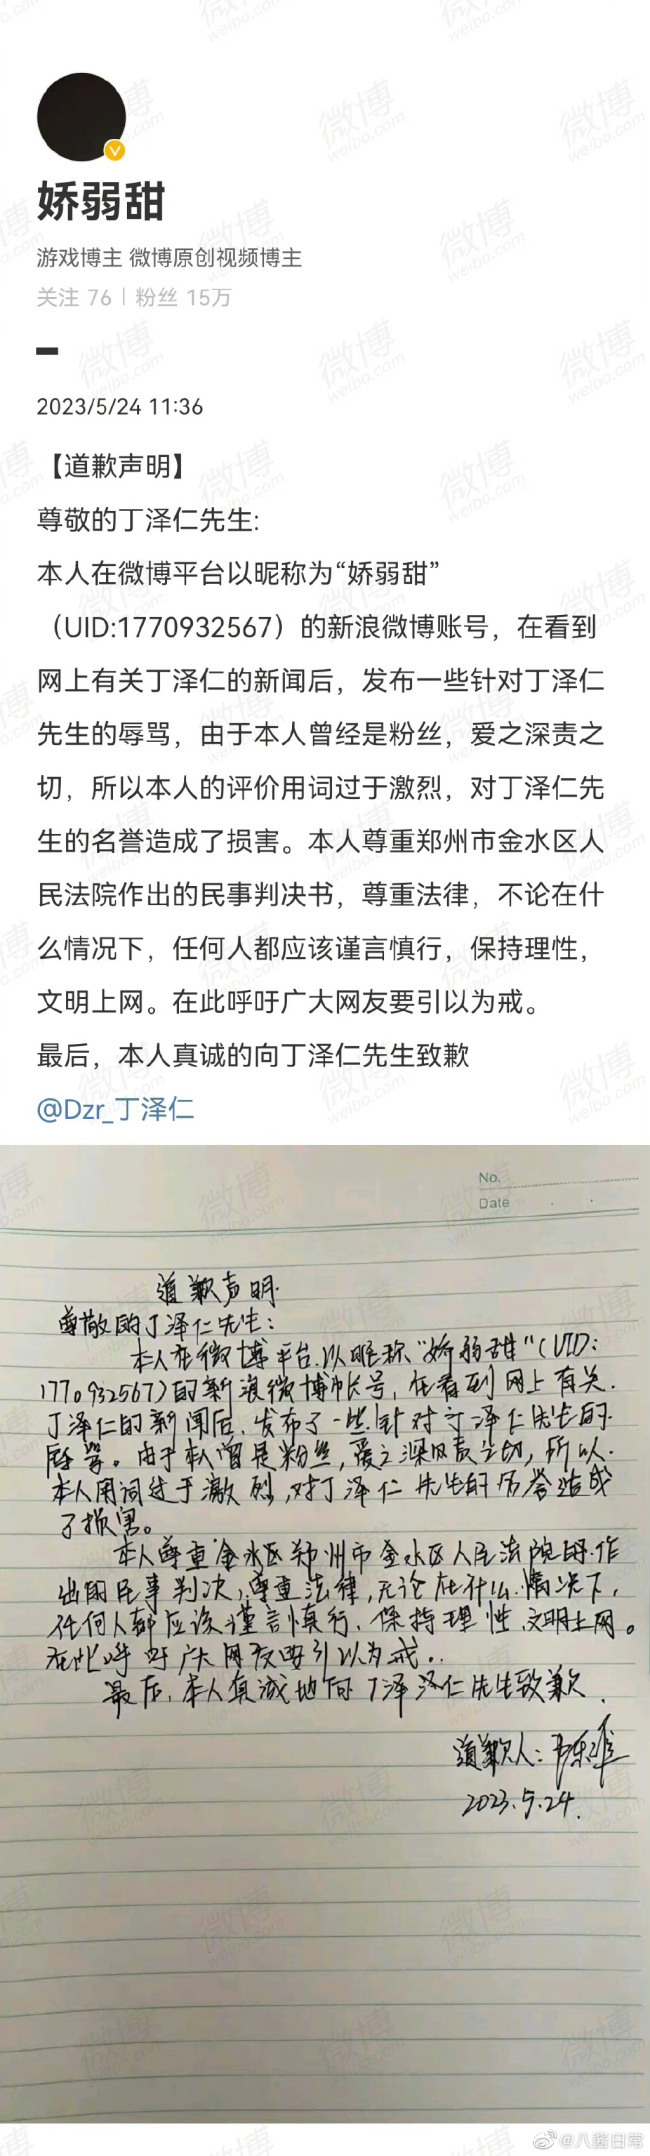 娇弱甜
游戏博主 微博原创视频博主
关注 76 | 粉丝 15万
2023/5/24 11:36
【道歉声明】
尊敬的丁泽仁先生:
本人在微博平台以昵称为“娇弱甜”
（UID:1770932567）的新浪微博账号，在看到
网上有关丁泽仁的新闻后，发布一些针对丁泽仁
先生的辱骂，由于本人曾经是粉丝，爱之深责之
切，所以本人的评价用词过于激烈，对丁泽仁先
生的名誉造成了损害。本人尊重郑州市金水区人
民法院作出的民事判决书，尊重法律，不论在什
么情况下，任何人都应该谨言慎行，保持理性，
文明上网。在此呼吁广大网友要引以为戒。
最后，本人真诚的向丁泽仁先生致歉
@Dzr_丁泽仁
No.
Date
道歉声明
尊敬的丁泽仁先生：
本人在微博平台以昵称“娇弱甜”(UID:
1770932567)的新浪微博帐号，在看到网上有关
丁泽仁的新闻后，发布了一些针对丁泽仁先生的
辱骂。由于本人曾是粉丝，爱之深责之切，所以
本人用词过于激烈，对丁泽仁先生的名誉造成
了损害。
本人尊重金水区郑州市金水区人民法院的作
出的民事判决，尊重法律，无论在什么情况下，
任何人都应该谨言慎行，保持理性，文明上网。
在此呼吁广大网友要引以为戒。
最后，本人真诚地向丁泽泽仁先生致歉
道歉人：
2023.5.24.
@八酱日常
微博
weibo.com